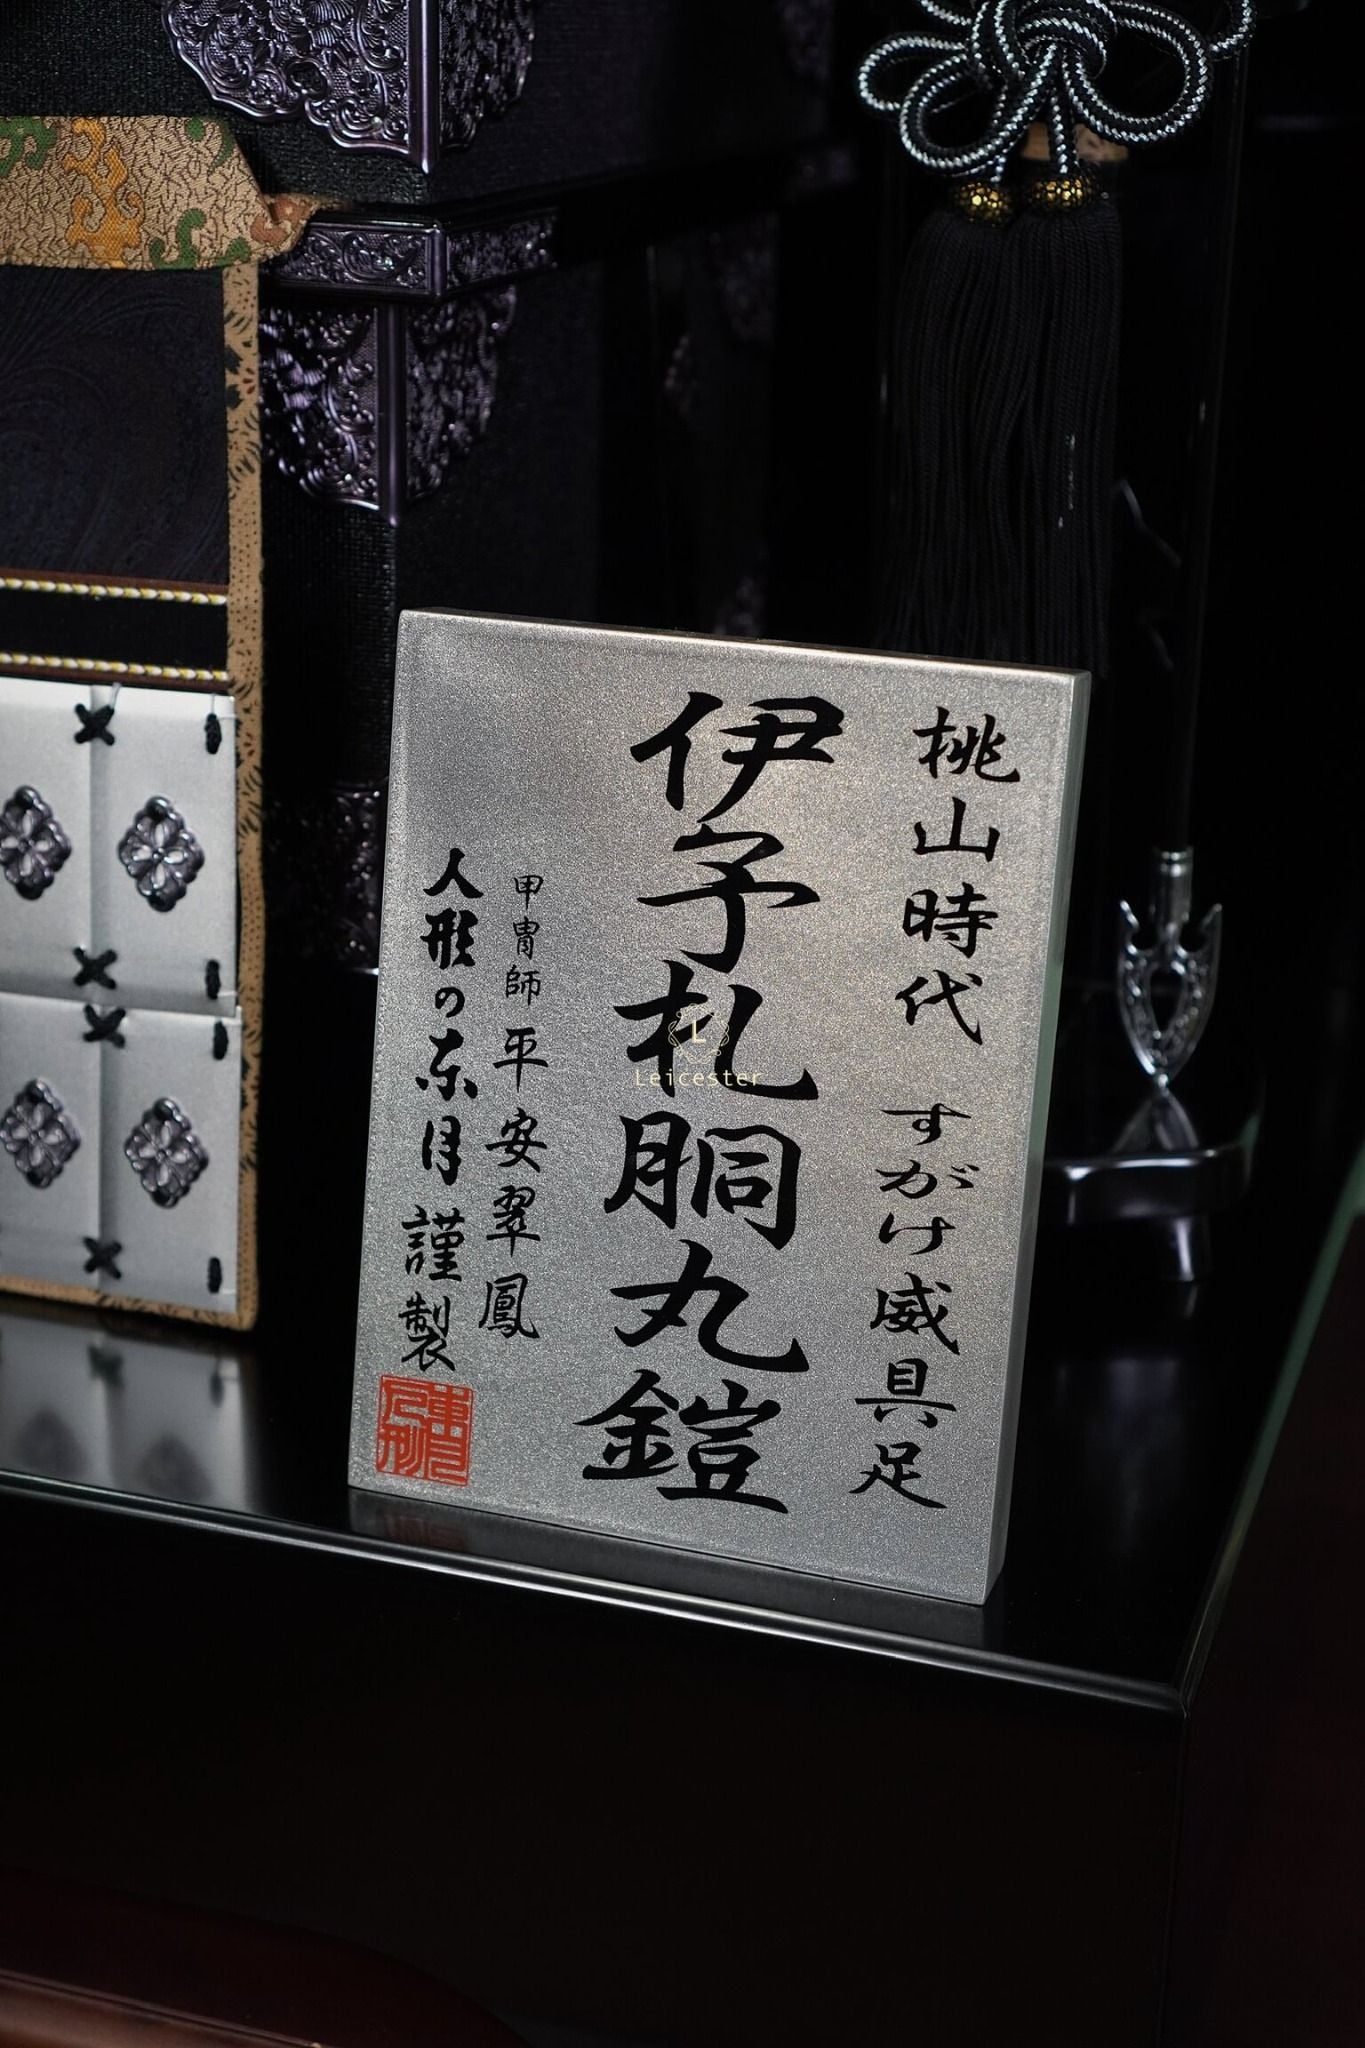 桃山時代 すがけ威具足
伊予札胴丸鎧
甲冑師 平安翠鳳
人形の东月 謹製
L
Leicester